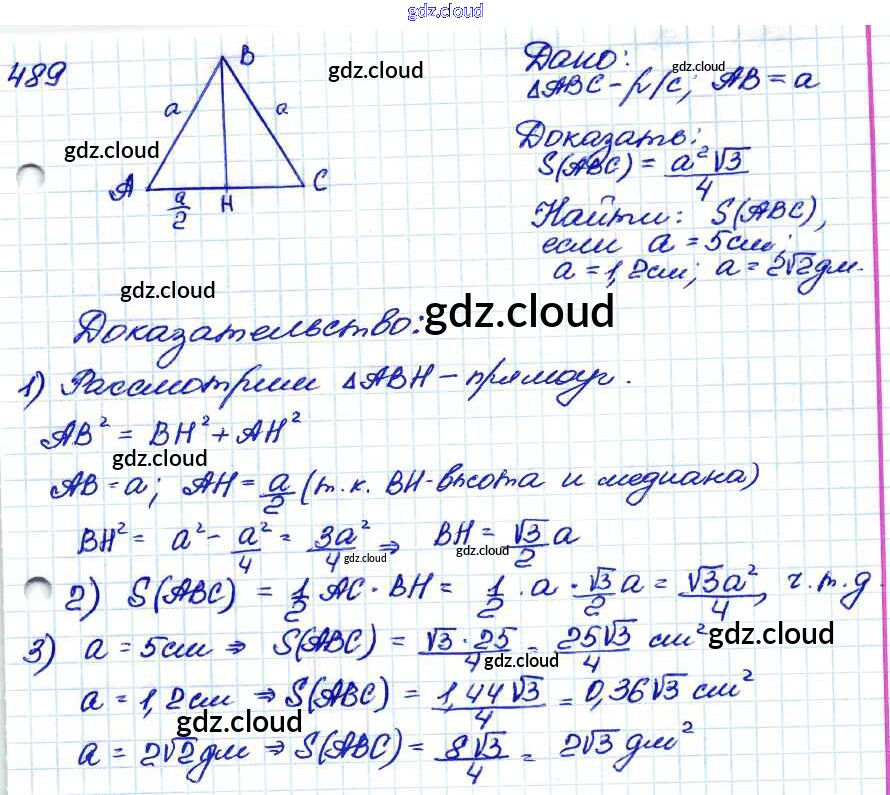 gdz.cloud
489
B
a
a
A
a/2
H
C
gdz.cloud
gdz.cloud
Дано:
gdz.cloud
△ABC – р/с; AB = a
Доказать:
S(ABC) = a²√3/4
Найти: S(ABC),
если a = 5см;
a = 1,2см; a = 2√2дм.
gdz.cloud
Доказательство:
gdz.cloud
1) Рассмотрим △ABH – прямоуг.
AB² = BH² + AH²
gdz.cloud
gdz.cloud
AB = a; AH = a/2 (т.к. BH - высота и медиана)
BH² = a² - a²/4 = 3a²/4 ⇒ BH = √3/2 a
gdz.cloud
gdz.cloud
2) S(ABC) = 1/2 AC · BH = 1/2 · a · √3/2 a = √3a²/4, ч.т.д.
gdz.cloud
3) a = 5см ⇒ S(ABC) = √3·25/4 = 25√3/4 см²
gdz.cloud
gdz.cloud
a = 1,2см ⇒ S(ABC) = 1,44√3/4 = 0,36√3 см²
gdz.cloud
a = 2√2дм ⇒ S(ABC) = 8√3/4 = 2√3 дм²